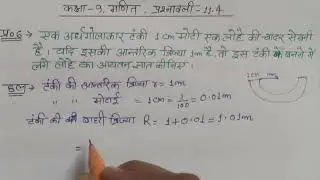 कक्षा-9, गणित, प्रश्नावली-11.4
प्र०6 → एक अर्धगोलाकार टंकी 1cm मोटी एक लोहे की चादर से बनी
है। यदि इसकी आन्तरिक त्रिज्या 1m है, तो इस टंकी के बनाने में
लगे लोहे का आयतन ज्ञात कीजिए।
1cm 1m
हल → टंकी की आन्तरिक त्रिज्या r = 1m
" " मोटाई = 1cm = 1/100 = 0.01m
टंकी की बाहरी त्रिज्या R = 1+0.01 = 1.01m
=